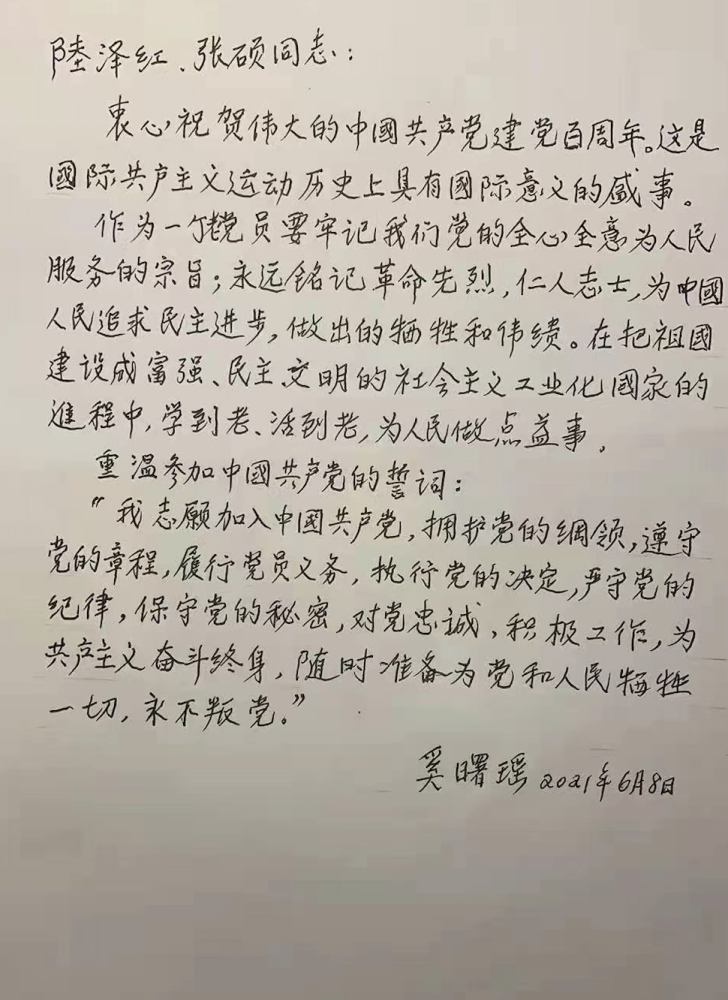 陸泽红、张硕同志：
衷心祝贺伟大的中國共产党建党百周年。这是
國际共产主义运动历史上具有國际意义的盛事。
作为一个党员要牢记我们党的全心全意为人民
服务的宗旨；永远铭记革命先烈，仁人志士，为中國
人民追求民主进步，做出的牺牲和伟绩。在把祖国
建设成富强、民主、文明的社会主义工业化國家的
進程中，学到老、活到老，为人民做点益事，
重温参加中國共产党的誓词：
“我志愿加入中國共产党，拥护党的纲领，遵守
党的章程，履行党员义务，执行党的决定，严守党的
纪律，保守党的秘密，对党忠誠，积极工作，为
共产主义奋斗终身，随时准备为党和人民牺牲
一切，永不叛党。”
奚曙瑶 2021年6月8日